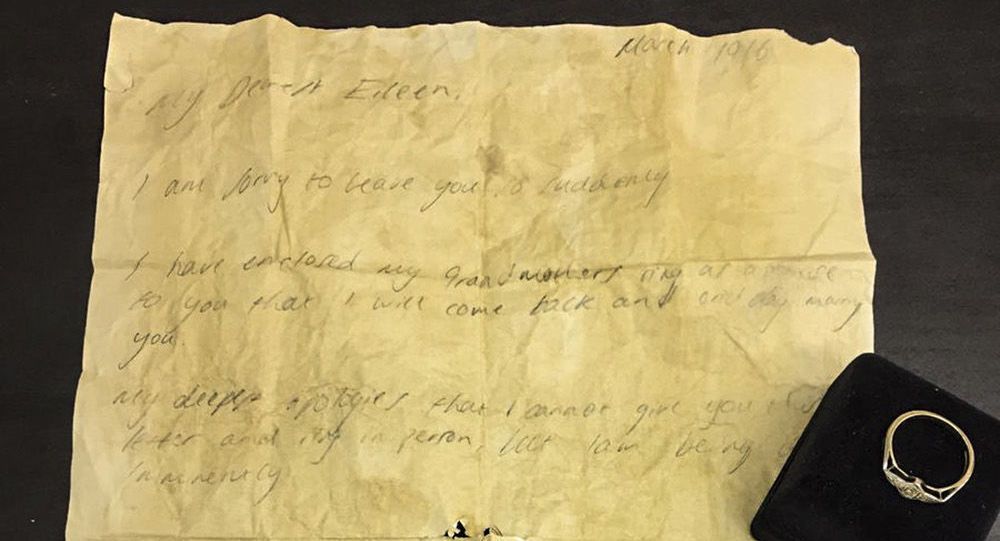 March 1916
My Dearest Eileen,
I am sorry to leave you so suddenly
I have enclosed my Grandmothers ring as a promise
to you that I will come back and one day marry
you.
My deepest apologies that I cannot give you this
letter and ring in person, but I am being
imminently